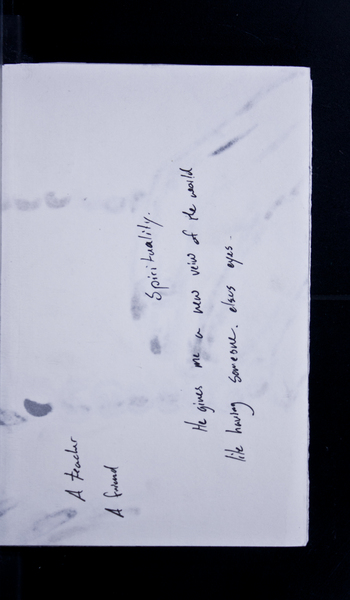 A teacher
A friend
Spirituality.
He gives me a new veiw of the world
like having someone. elses eyes.